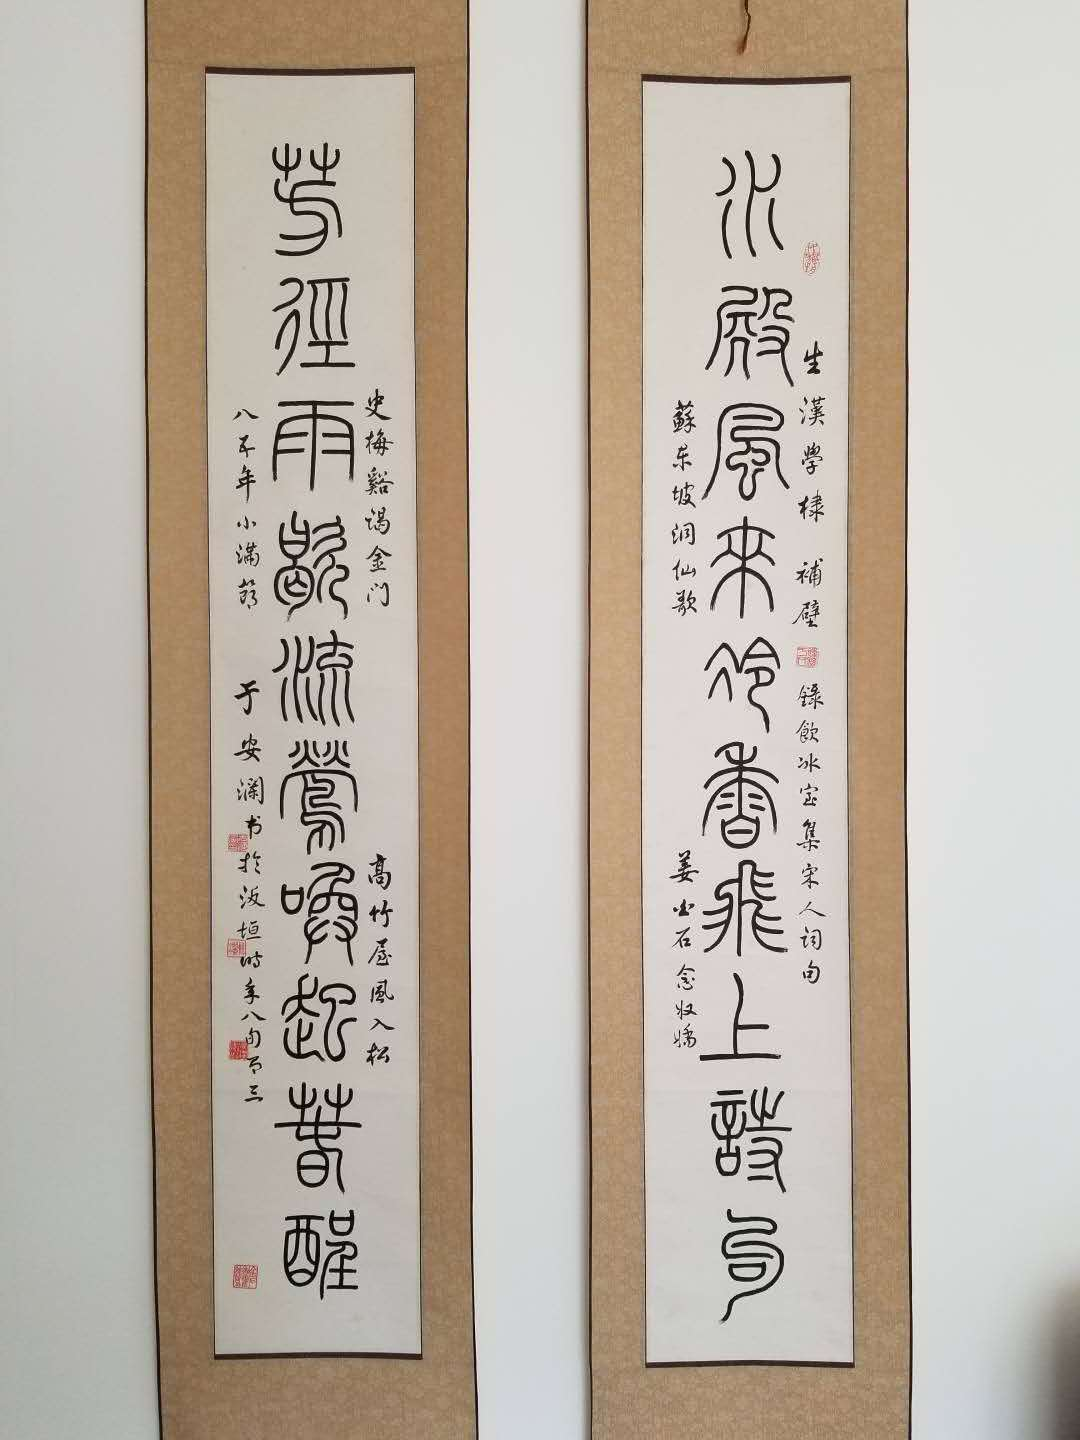 生漢學棣 補壁 錄飲冰室集宋人词句
水殿風來冷香飛上詩句
蘇东坡洞仙歌 姜白石念奴嬌
史梅谿谒金门 高竹屋風入松
芳徑雨歇流鶯喚起春醒
八五年小满節 于安澜书於汳垣时年八旬有三